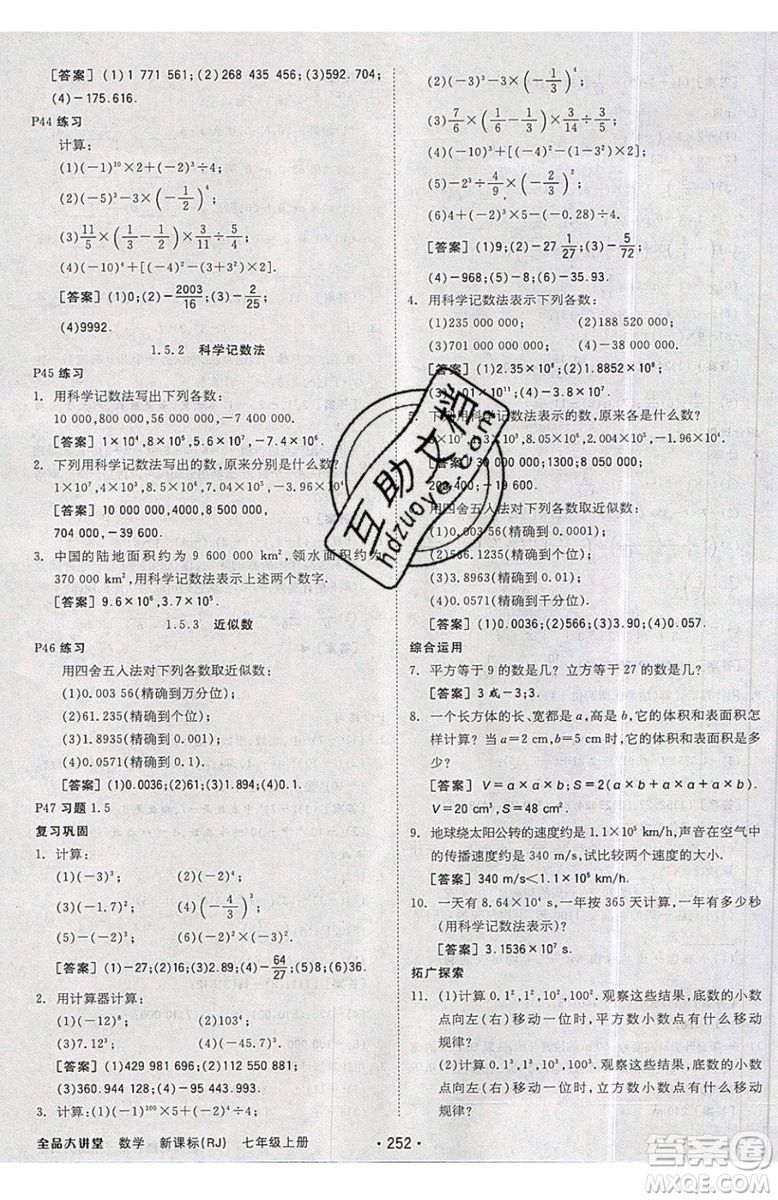 [答案] (1)1 771 561;(2)268 435 456;(3)592.704;
(4)-175.616.
P44 练习
计算:
(1)(-1)¹⁰×2+(-2)³÷4;
(2)(-5)³-3×(-1/2)⁴;
(3)11/5×(1/3-1/2)×3/11÷5/4;
(4)(-10)⁴+[(-4)²-(3+3²)×2].
[答案] (1)0;(2)-2003/16;(3)-2/25;
(4)9992.
1.5.2 科学记数法
P45 练习
1. 用科学记数法写出下列各数:
10 000,800 000,56 000 000,-7 400 000.
[答案] 1×10⁴,8×10⁵,5.6×10⁷,-7.4×10⁶.
2. 下列用科学记数法写出的数,原来分别是什么数?
1×10⁷,4×10³,8.5×10⁶,7.04×10⁵,-3.96×10⁴.
[答案] 10 000 000,4000,8 500 000,
704 000,-39 600.
3. 中国的陆地面积约为 9 600 000 km²,领水面积约为
370 000 km²,用科学记数法表示上述两个数字.
[答案] 9.6×10⁶,3.7×10⁵.
1.5.3 近似数
P46 练习
用四舍五人法对下列各数取近似数:
(1)0.003 56(精确到万分位);
(2)61.235(精确到个位);
(3)1.8935(精确到0.001);
(4)0.0571(精确到0.1).
[答案] (1)0.0036;(2)61;(3)1.894;(4)0.1.
P47 习题 1.5
复习巩固
1. 计算:
(1)(-3)³; (2)(-2)⁴;
(3)(-1.7)²; (4)(-4/3)³;
(5)-(-2)³; (6)(-2)²×(-3)².
[答案] (1)-27;(2)16;(3)2.89;(4)-64/27;(5)8;(6)36.
2. 用计算器计算:
(1)(-12)⁸; (2)103⁴;
(3)7.12³; (4)(-45.7)³.
[答案] (1)429 981 696;(2)112 550 881;
(3)360.944 128;(4)-95 443.993.
3. 计算:(1)(-1)¹⁰⁰×5+(-2)⁴÷4;
(2)(-3)³-3×(-1/3)⁴;
(3)7/6×(1/6-1/3)×3/14÷3/5;
(4)(-10)³+[(-4)²-(1-3²)×2];
(5)-2³÷4/9×(-2/3)²;
(6)4+(-2)³×5-(-0.28)÷4.
[答案] (1)9;(2)-27 1/27;(3)-5/72;
(4)-968;(5)-8;(6)-35.93.
4. 用科学记数法表示下列各数:
(1)235 000 000; (2)188 520 000;
(3)701 000 000 000; (4)-38 000 000.
[答案] (1)2.35×10⁸;(2)1.8852×10⁸;
(3)7.01×10¹¹;(4)-3.8×10⁷.
5. 下列用科学记数法表示的数,原来各是什么数?
3×10⁷,1.3×10³,8.05×10⁶,2.004×10⁵,-1.96×10⁴.
[答案] 30 000 000,1300,8 050 000,
200 400,-19 600.
用四舍五入法对下列各数取近似数:
(1)0.003 56(精确到0.0001);
(2)566.1235(精确到个位);
(3)3.8963(精确到0.01);
(4)0.0571(精确到千分位).
[答案] (1)0.0036;(2)566;(3)3.90;(4)0.057.
综合运用
7. 平方等于 9 的数是几? 立方等于 27 的数是几?
[答案] 3 或-3;3.
8. 一个长方体的长、宽都是 a,高是 b,它的体积和表面积怎
样计算? 当 a=2 cm,b=5 cm 时,它的体积和表面积是多
少?
[答案] V=a·a·b,S=2(a·b+a·b+a·a).
V=20 cm³,S=48 cm².
9. 地球绕太阳公转的速度约是 1.1×10⁵ km/h,声音在空气中
的传播速度约是 340 m/s,试比较两个速度的大小.
[答案] 340 m/s<1.1×10⁵ km/h.
10. 一天有 8.64×10⁴ s,一年按 365 天计算,一年有多少秒
(用科学记数法表示)?
[答案] 3.1536×10⁷ s.
拓广探索
11. (1)计算 0.1²,1²,10²,100². 观察这些结果,底数的小数
点向左(右)移动一位时,平方数小数点有什么移动
规律?
(2)计算 0.1³,1³,10³,100³. 观察这些结果,底数的小数
点向左(右)移动一位时,立方数小数点有什么移动
规律?
全品大讲堂 数学 新课标(RJ) 七年级上册 ·252·
互助文档
hdzuoye.com
作业精灵